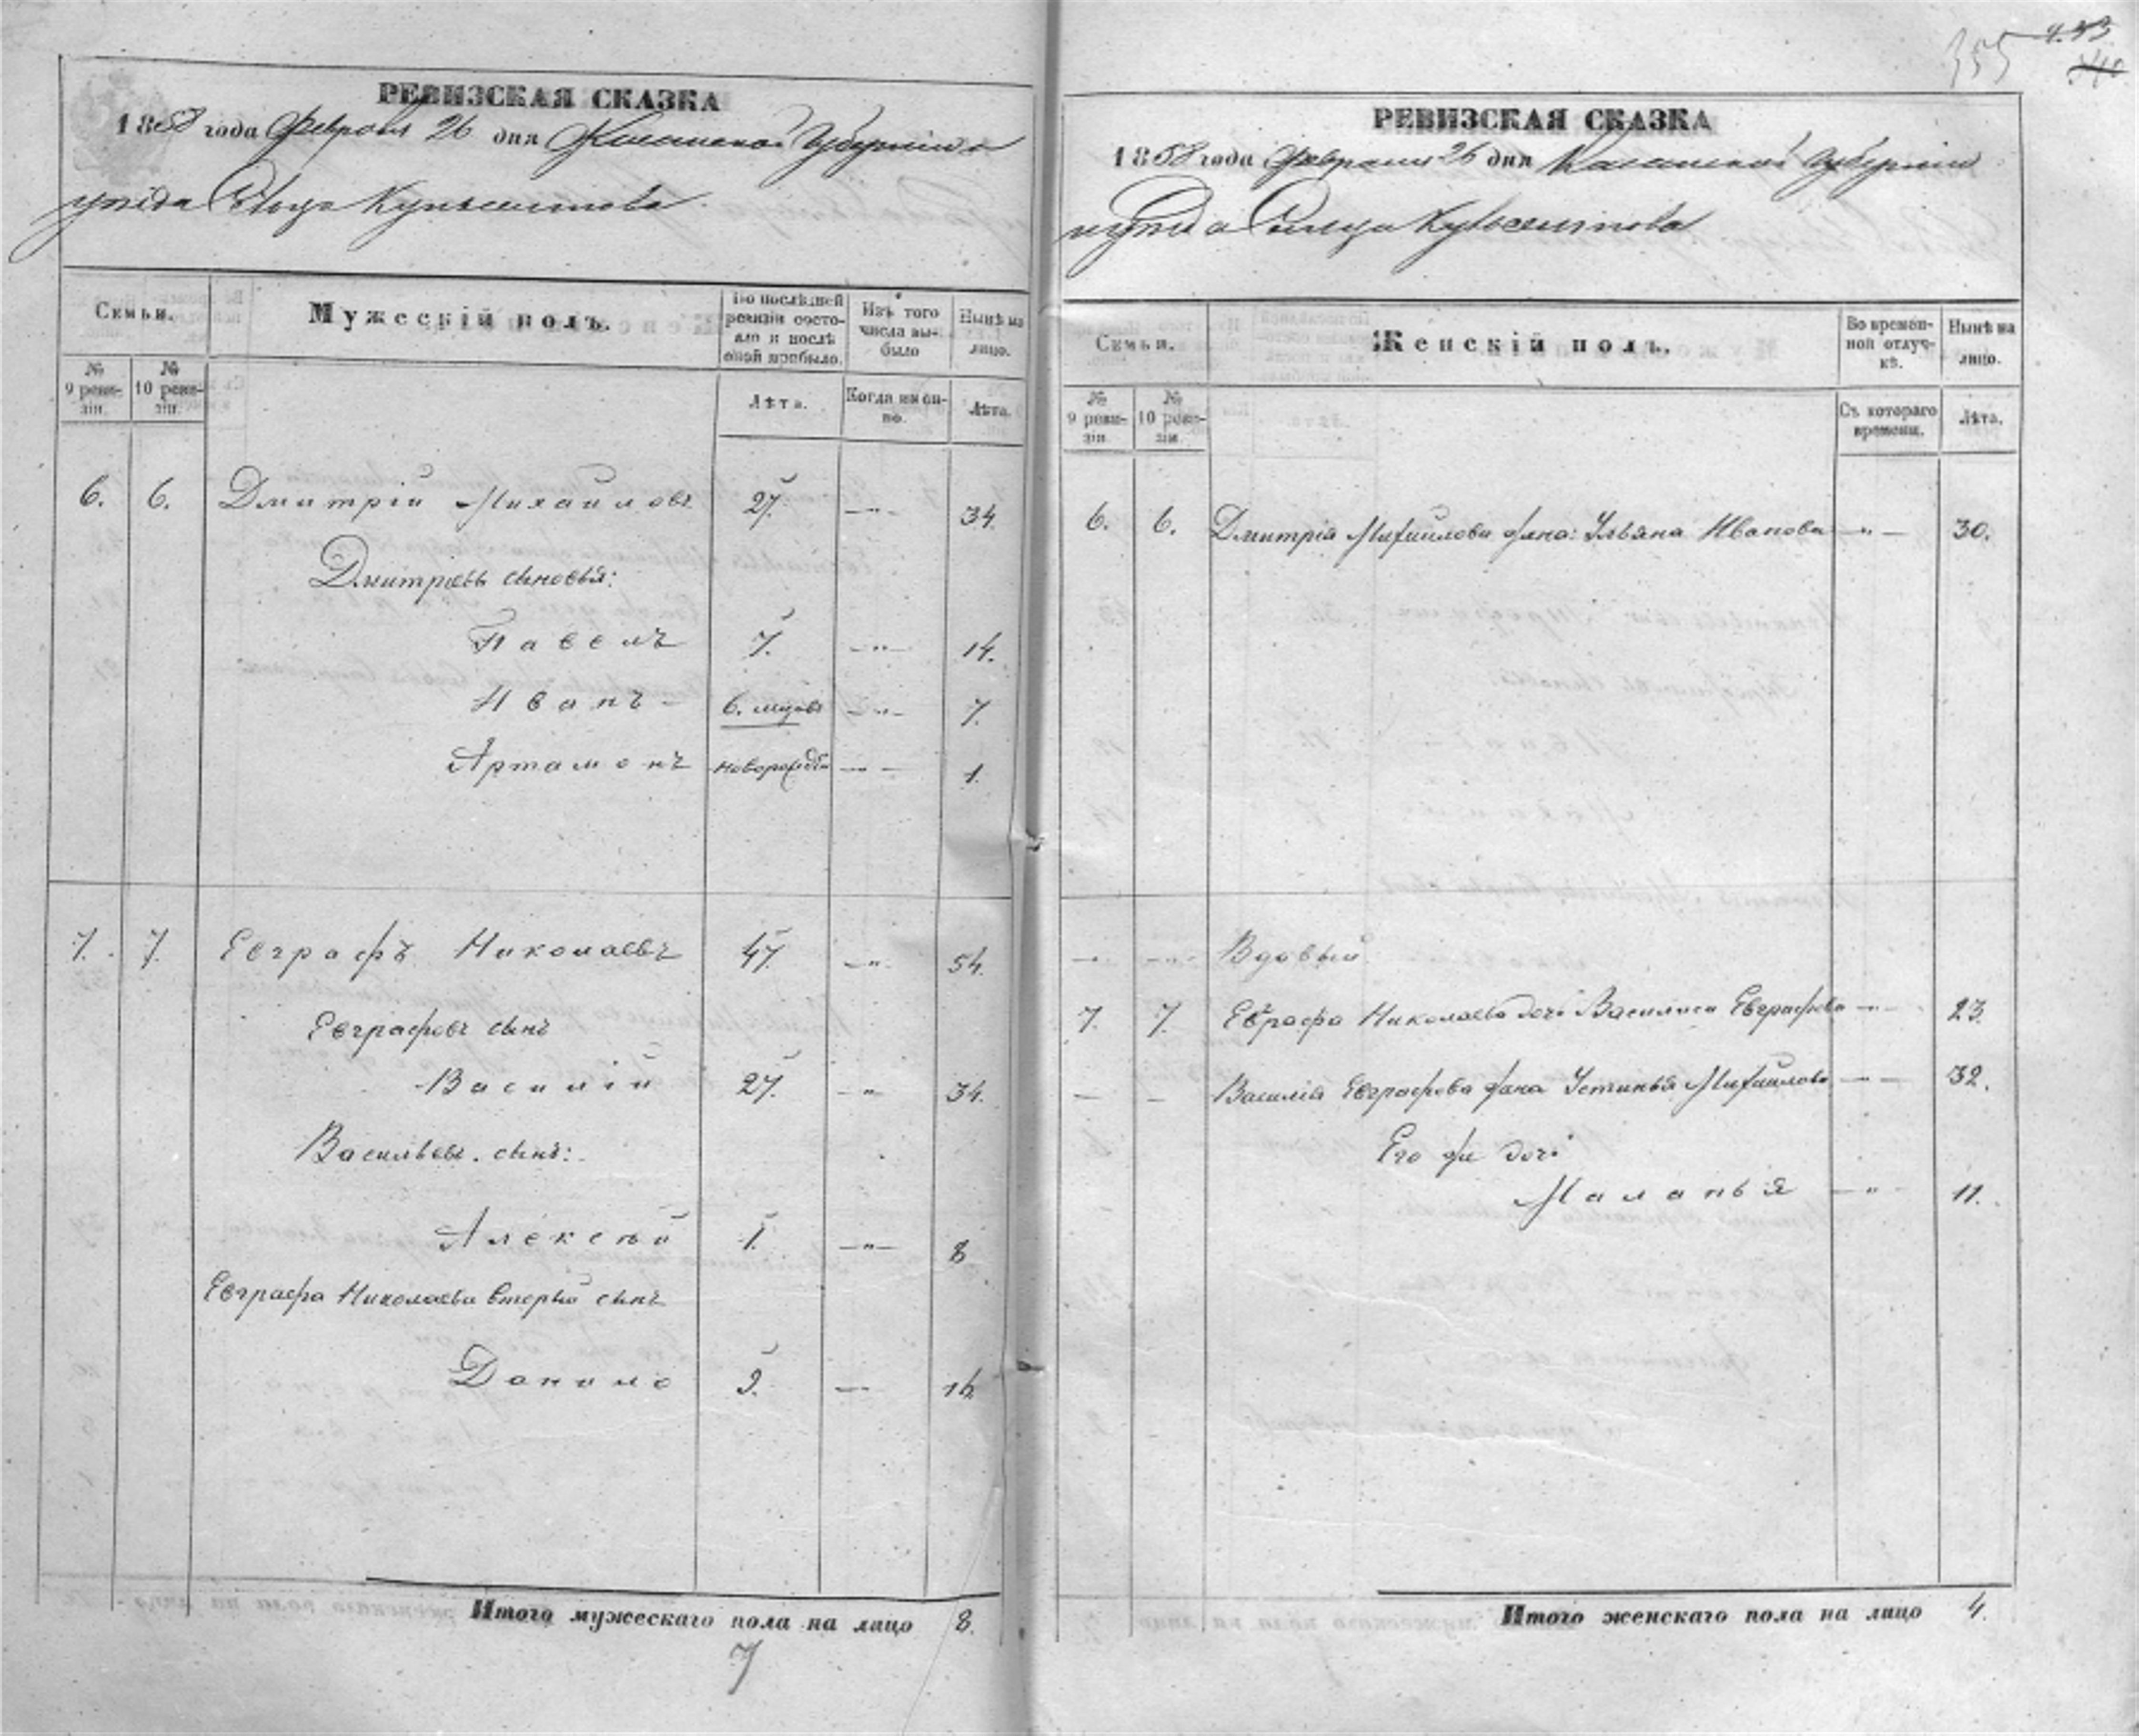 355
РЕВИЗСКАЯ СКАЗКА
1858 года Февраля 26 дня Казанской Губернии и
уѣзда Села
Семьи.
Мужескій полъ.
По послѣдней ревизіи состояло и послѣ оной прибыло.
Изъ того числа выбыло
Нынѣ на лицо.
№ 9 ревизіи.
№ 10 ревизіи.
Лѣта.
Когда именно.
Лѣта.
6. 6. Дмитрій Михайловъ 27. —"— 34.
Дмитріевы сыновья:
Павелъ 7. —"— 14.
Иванъ – 6. мцовъ —"— 7.
Артамонъ новорожд —"— 1.
7. 7. Евграфъ Николаевъ 47. —"— 54.
Евграфовъ сынъ
Василій 27. —"— 34.
Васильевъ сынъ:
Алексѣй 1. —"— 8
Евграфа Николаева вторый сынъ
Данило 9. — 16
Итого мужескаго пола на лицо 8.
7
РЕВИЗСКАЯ СКАЗКА
1858 года Февраля 26 дня Казанской Губерніи
и уѣзда Сельца
Семьи.
Женскій полъ.
Во временной отлучкѣ.
Нынѣ на лицо.
№ 9 ревизіи.
№ 10 ревизіи.
Съ котораго времени.
Лѣта.
6. 6. Дмитрія Михайлова жена: Ульяна Иванова —"— 30.
Вдовый
7. 7. Евграфа Николаева дочь Василиса Евграфова —"— 23.
— — Василія Евграфова жена Устинья Михайлова —"— 32.
Его же дочь
Маланья —"— 11.
Итого женскаго пола на лицо 4.